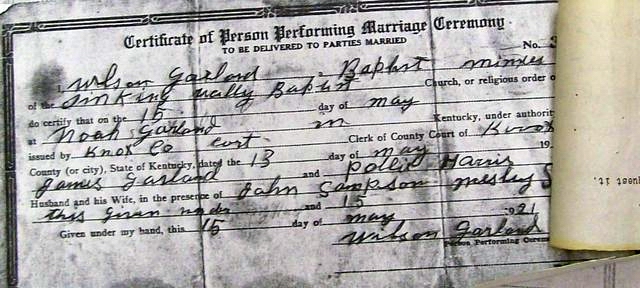 Certificate of Person Performing Marriage Ceremony
TO BE DELIVERED TO PARTIES MARRIED
No.
I, Wilson Garland, Baptist
of the Sinking Baptist Church, or religious order o
do certify that on the 15 day of may
at Noah Garland in Kentucky, under authority
issued by Knox Co cort Clerk of County Court of Knox
County (or city), State of Kentucky, dated the 13 day of may 19
James Garland and Pollie Harris
Husband and his Wife, in the presence of John Sampson mesley S
this given under and 15
Given under my hand, this 15 day of may 1921
Wilson Garland
Person Performing Cerem